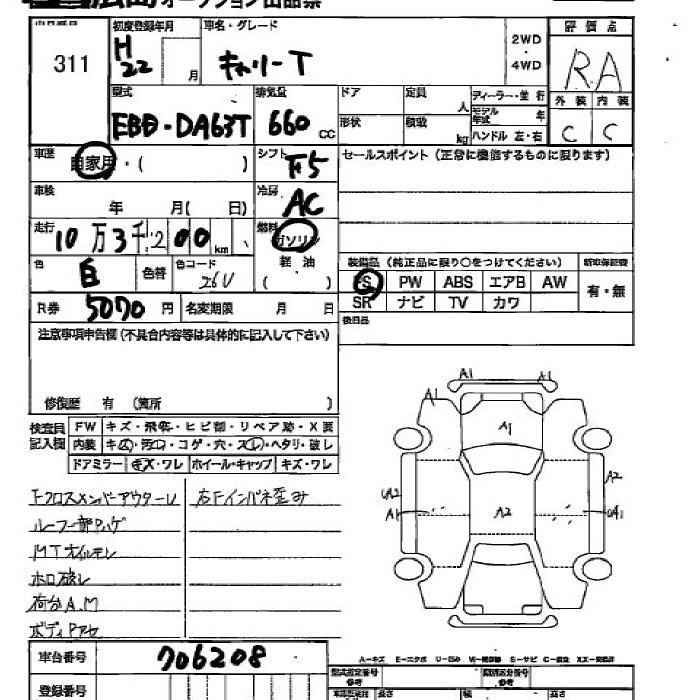 オークション出品票
311
初度登録年月 H22 月
車名・グレード キャリーT
2WD・4WD
評価点 RA
外装 内装
C C
型式 EBD-DA63T
排気量 660 cc
ドア 定員 人
形状 積載 kg
ディーラー・並行
モデル年式 年
ハンドル 左・右
車歴 自家用・( )
シフト F5
セールスポイント (正常に機能するものに限ります)
車検 年 月( 日)
冷房 AC
走行 10万3千200km
燃料 ガソリン
軽油
( )
色 白 色替
色コード 26U
装備品 (純正品に限り○をつけてください)
新車保証書
有・無
PS PW ABS エアB AW
SR ナビ TV カワ
R券 5070円
名変期限 月 日
後日品
注意事項申告欄 (不具合内容等は具体的に記入して下さい)
修復歴 有 (箇所 )
検査員記入欄
FW キズ・飛石・ヒビ割・リペア跡・X要
内装 キズ・汚れ・コゲ・穴・スレ・ヘタリ・破レ
ドアミラー キズ・ワレ ホイール・キャップ キズ・ワレ
Fクロスメンバーアウターレ
右Fインパネ歪み
ルーフ部
MTオイルモレ
ホロ破レ
荷台A.M
ボディPアセ
A1 A1
A1
A1
A2
UA2
A1
A2
UA1
車台番号 706208
A-キズ E-エクボ U-凹み W-補修跡 S-サビ C-腐食 XX-交換済
型式指定番号 参考
類別区分番号 参考
登録番号
長さ 幅 高さ